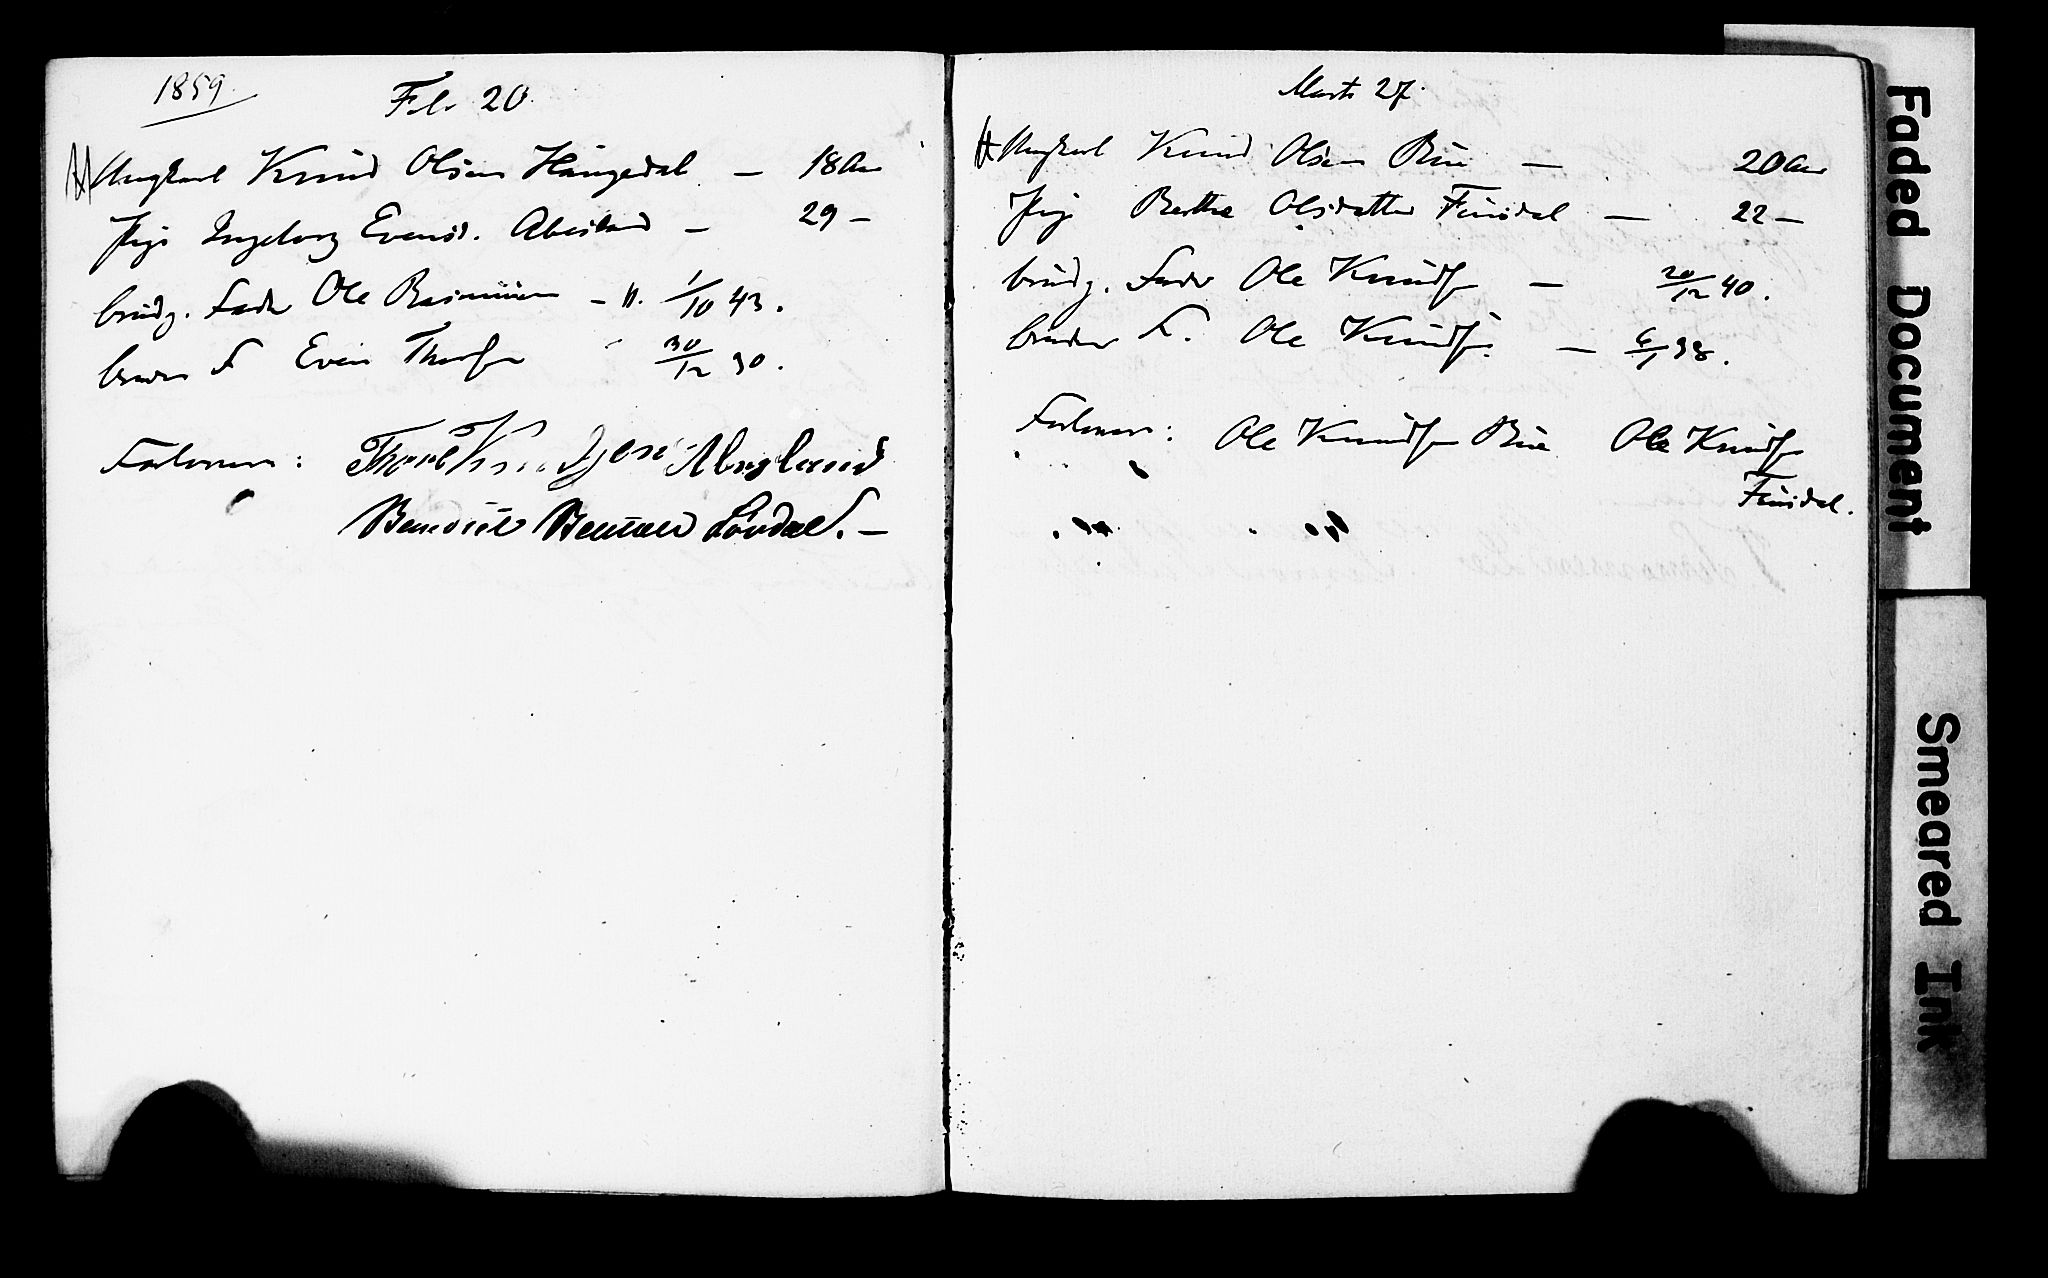 1859.
Feb 20.
Ungkarl Knud Olsen Haugedal — 18 Aar
Pige Ingeborg Evensd. Abesland — 29 —
brudg. Fader Ole Rasmussen — 1/10 43.
bruden F Even Thorsen 30/12 30.
Forlovere: Knudsen Abesland
Løvdal. —
Marts 27.
Ungkarl Knud Olsen Bue — 20 Aar
Pige Berthe Olsdatter Finsdal — 22 —
brudg. Fader Ole Knudsen — 20/12 40.
bruden F. Ole Knudsen. — 6/1 38.
Forlovere: Ole Knudsen Bue Ole Knudsen
Finsdal.
Faded Document
Smeared Ink